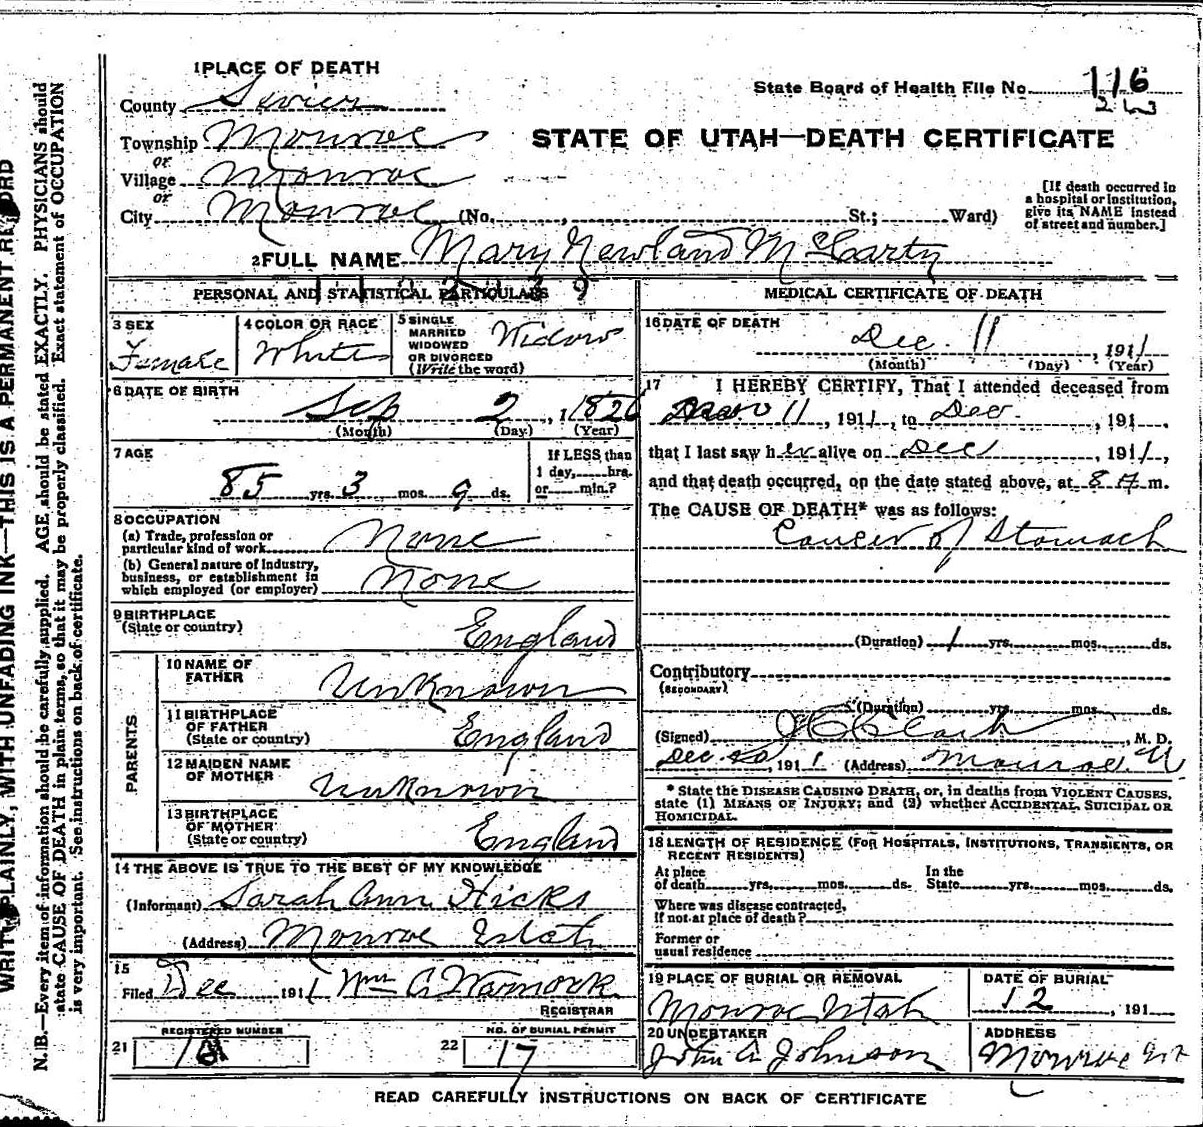 WRITE PLAINLY, WITH UNFADING INK—THIS IS A PERMANENT RECORD
N. B.—Every item of information should be carefully supplied. AGE should be stated EXACTLY. PHYSICIANS should
state CAUSE OF DEATH in plain terms, so that it may be properly classified. Exact statement of OCCUPATION
is very important. See instructions on back of certificate.
1 PLACE OF DEATH
County Sevier
State Board of Health File No. 116
243
Township Monroe
or
Village Monroe
or
City Monroe (No. , St.; Ward)
STATE OF UTAH—DEATH CERTIFICATE
[If death occurred in
a hospital or institution,
give its NAME instead
of street and number.]
2 FULL NAME Mary Newland McCarty
PERSONAL AND STATISTICAL PARTICULARS
3 SEX
Female
4 COLOR OR RACE
White
5 SINGLE
MARRIED
WIDOWED
OR DIVORCED
(Write the word)
Widow
6 DATE OF BIRTH
Sep 2, 1826
(Month) (Day) (Year)
7 AGE
85 yrs. 3 mos. 9 ds.
If LESS than
1 day, hrs.
or min.?
8 OCCUPATION
(a) Trade, profession or
particular kind of work None
(b) General nature of industry,
business, or establishment in
which employed (or employer) None
9 BIRTHPLACE
(State or country) England
PARENTS
10 NAME OF
FATHER Unknown
11 BIRTHPLACE
OF FATHER
(State or country) England
12 MAIDEN NAME
OF MOTHER Unknown
13 BIRTHPLACE
OF MOTHER
(State or country) England
14 THE ABOVE IS TRUE TO THE BEST OF MY KNOWLEDGE
(Informant) Sarah Ann Hicks
(Address) Monroe Utah
15
Filed Dec 1911 Wm A Warnock
REGISTRAR
REGISTERED NUMBER
21
NO. OF BURIAL PERMIT
22 17
MEDICAL CERTIFICATE OF DEATH
16 DATE OF DEATH
Dec. 11, 1911
(Month) (Day) (Year)
17 I HEREBY CERTIFY, That I attended deceased from
11, 1911, to Dec. , 191
that I last saw her alive on Dec , 1911,
and that death occurred, on the date stated above, at 8 A m.
The CAUSE OF DEATH* was as follows:
Cancer of Stomach
(Duration) 1 yrs. mos. ds.
Contributory
(SECONDARY)
(Duration) yrs. mos. ds.
(Signed) , M. D.
Dec , 1911 (Address) Monroe U
* State the DISEASE CAUSING DEATH, or, in deaths from VIOLENT CAUSES,
state (1) MEANS OF INJURY; and (2) whether ACCIDENTAL, SUICIDAL OR
HOMICIDAL.
18 LENGTH OF RESIDENCE (FOR HOSPITALS, INSTITUTIONS, TRANSIENTS, OR
RECENT RESIDENTS)
At place
of death yrs. mos. ds.
In the
State yrs. mos. ds.
Where was disease contracted,
if not at place of death?
Former or
usual residence
19 PLACE OF BURIAL OR REMOVAL
Monroe Utah
DATE OF BURIAL
12, 191
20 UNDERTAKER
John A Johnson
ADDRESS
Monroe Ut
READ CAREFULLY INSTRUCTIONS ON BACK OF CERTIFICATE